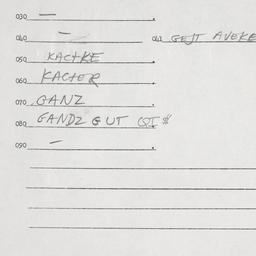 030 —
040 — 041 GEJT AVEKE
050 KACHKE
060 KACHER
070 GANZ
080 GANDZ GUT
090 —